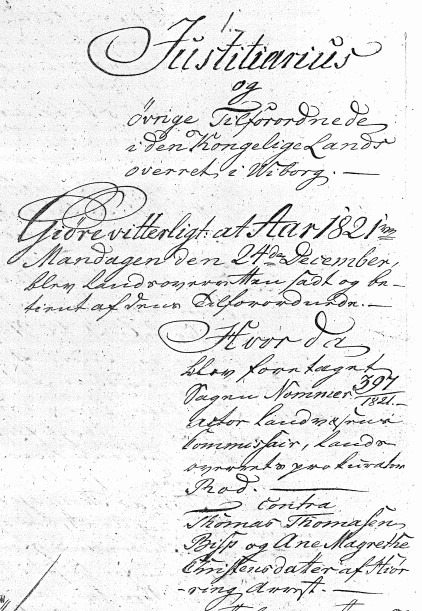 1.
Justitiarius
og
övrige Tilforordnede
i den Kongelige Lands
overret i Wiborg. —
Giöre vitterligt: at Aar 1821
Mandagen den 24de December,
blev Landsoverretten sadt og be-
tient af dens Tilforordnede. —
Hvor da
blev foretaget
Sagen Nommer 397/1821. —
actor Landvæsens
Commissair, Lands
overrets procurator
Rod. —
contra
Thomas Thomasen
Bisp og Ane Magrethe
Christensdatter af Hiör-
ring Arrest. —